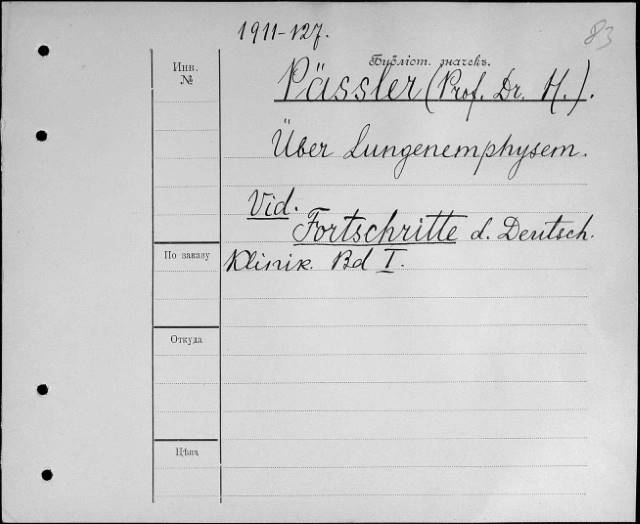 1911-127.
83
Библіот. значекъ.
Инв.
№
Pässler (Prof. Dr. H.).
Über Lungenemphysem.
Vid.
Fortschritte d. Deutsch.
По заказу
Klinik. Bd I.
Откуда
Цѣна